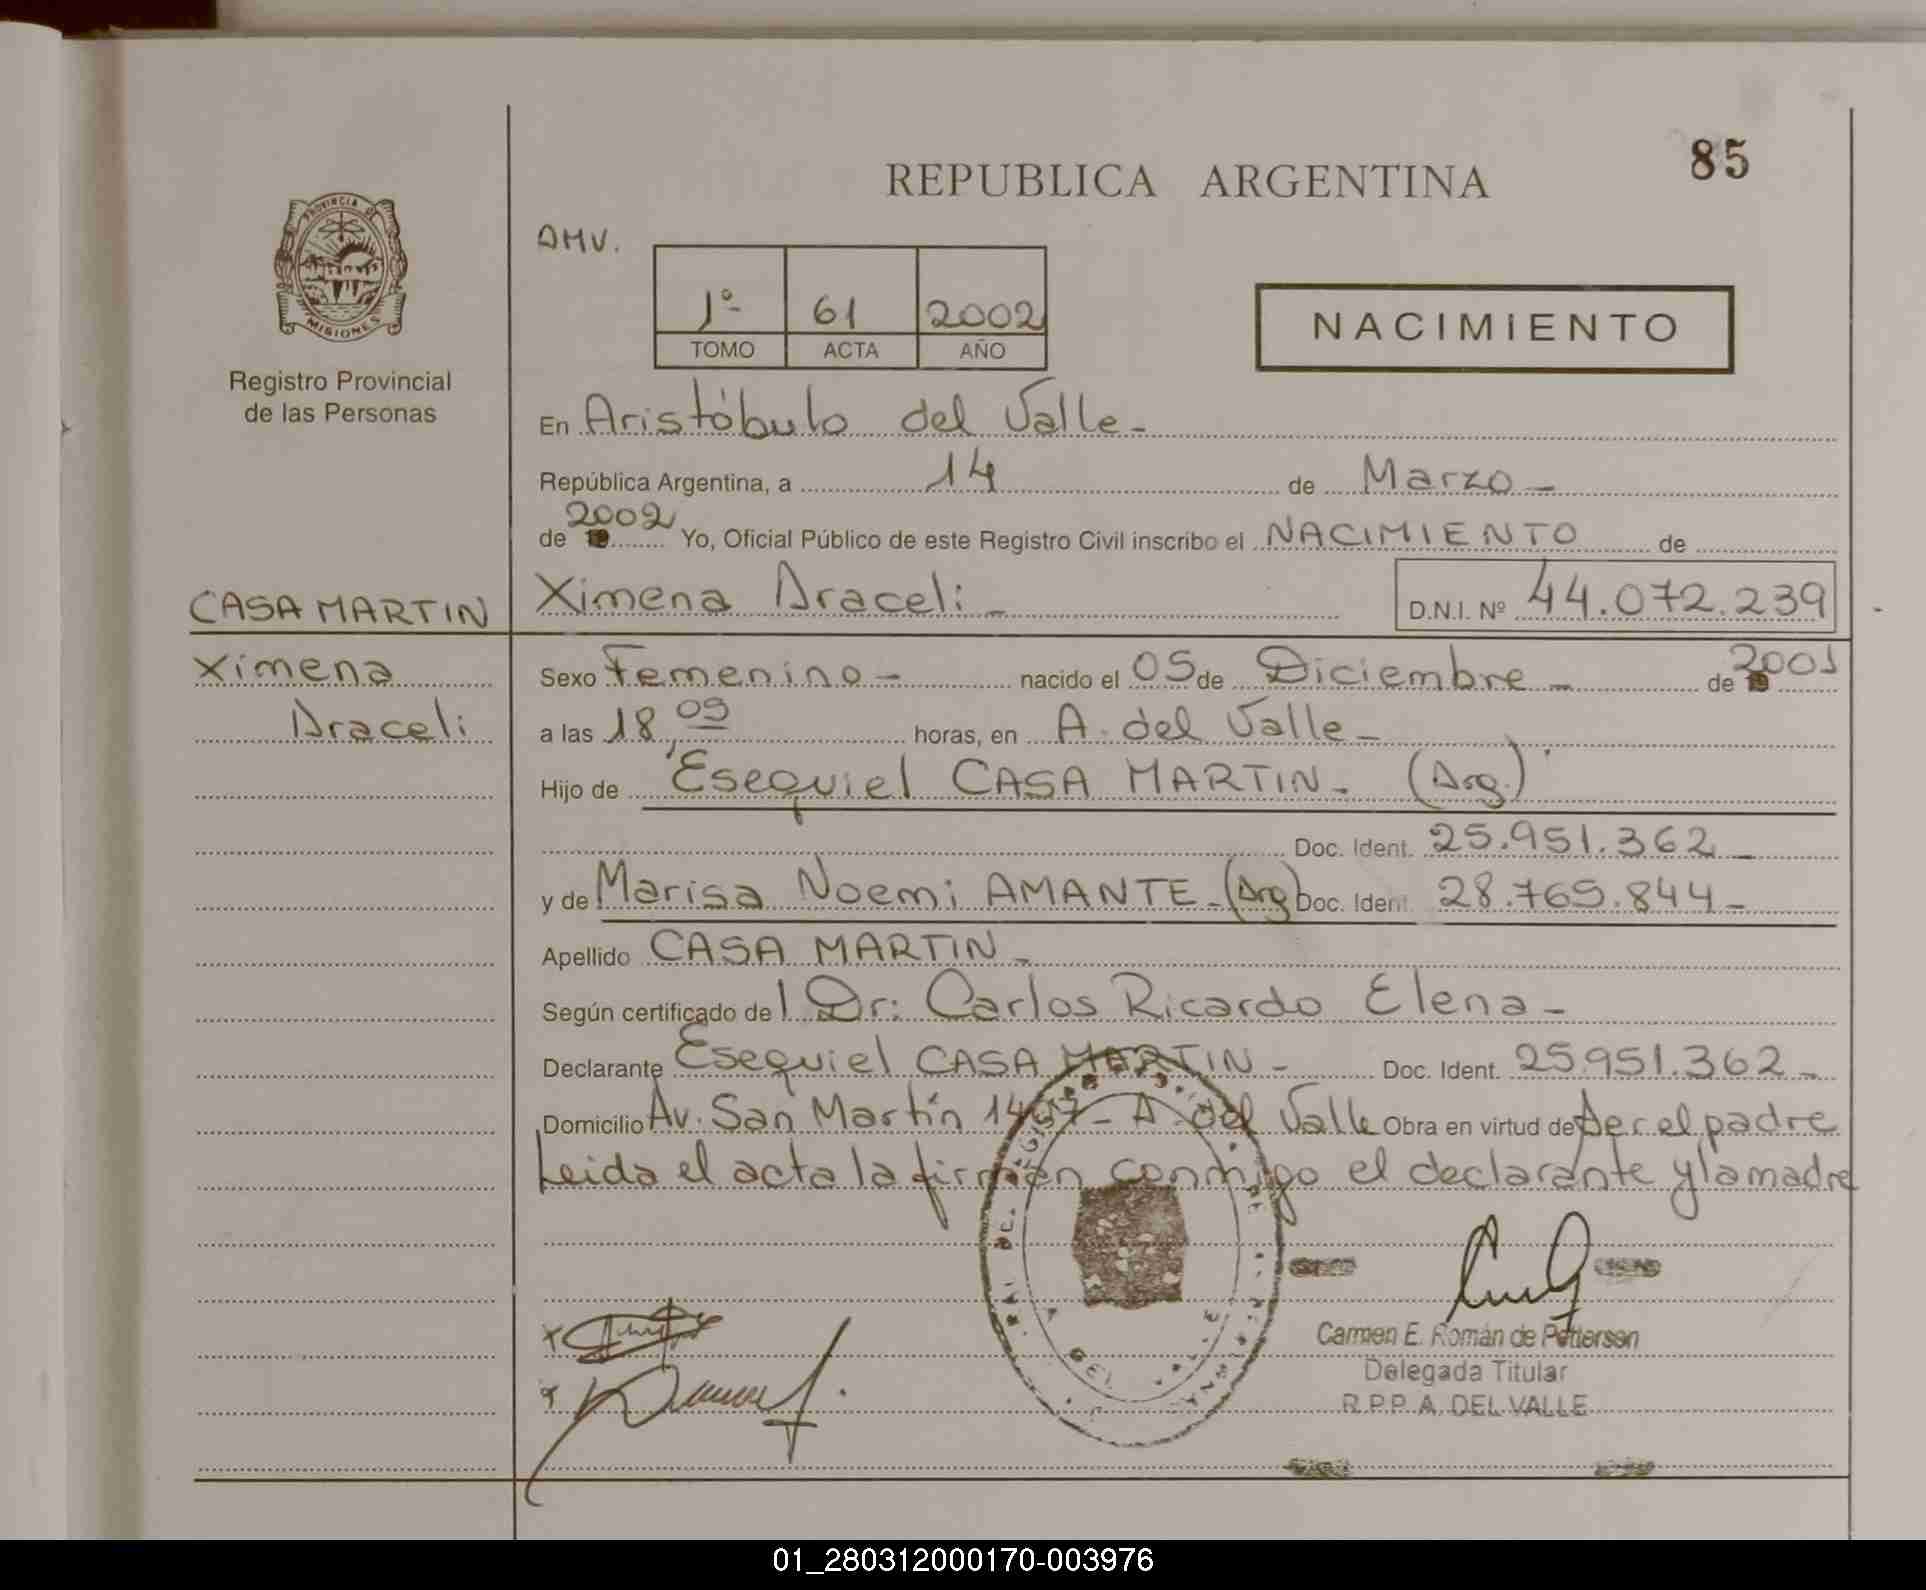 85
REPUBLICA ARGENTINA
PROVINCIA DE
MISIONES
Registro Provincial
de las Personas
AMV.
1º 61 2002
TOMO ACTA AÑO
NACIMIENTO
En Aristóbulo del Valle-
República Argentina, a 14 de Marzo-
de 2002 Yo, Oficial Público de este Registro Civil inscribo el NACIMIENTO de
CASA MARTIN Ximena Araceli- D.N.I. Nº 44.072.239
Ximena Sexo Femenino- nacido el 05 de Diciembre- de 2001
Araceli a las 18,09 horas, en A. del Valle-
Hijo de Esequiel CASA MARTIN- (Arg.)
Doc. Ident. 25.951.362-
y de Marisa Noemi AMANTE-(Arg) Doc. Ident. 28.769.844-
Apellido CASA MARTIN-
Según certificado del Dr: Carlos Ricardo Elena-
Declarante Esequiel CASA MARTIN- Doc. Ident. 25.951.362-
Domicilio Av. San Martín - A. del Valle Obra en virtud de ser el padre
Leida el acta la firman conmigo el declarante y la madre
Carmen E. Román de Pettersen
Delegada Titular
R.P.P. A. DEL VALLE
01_280312000170-003976